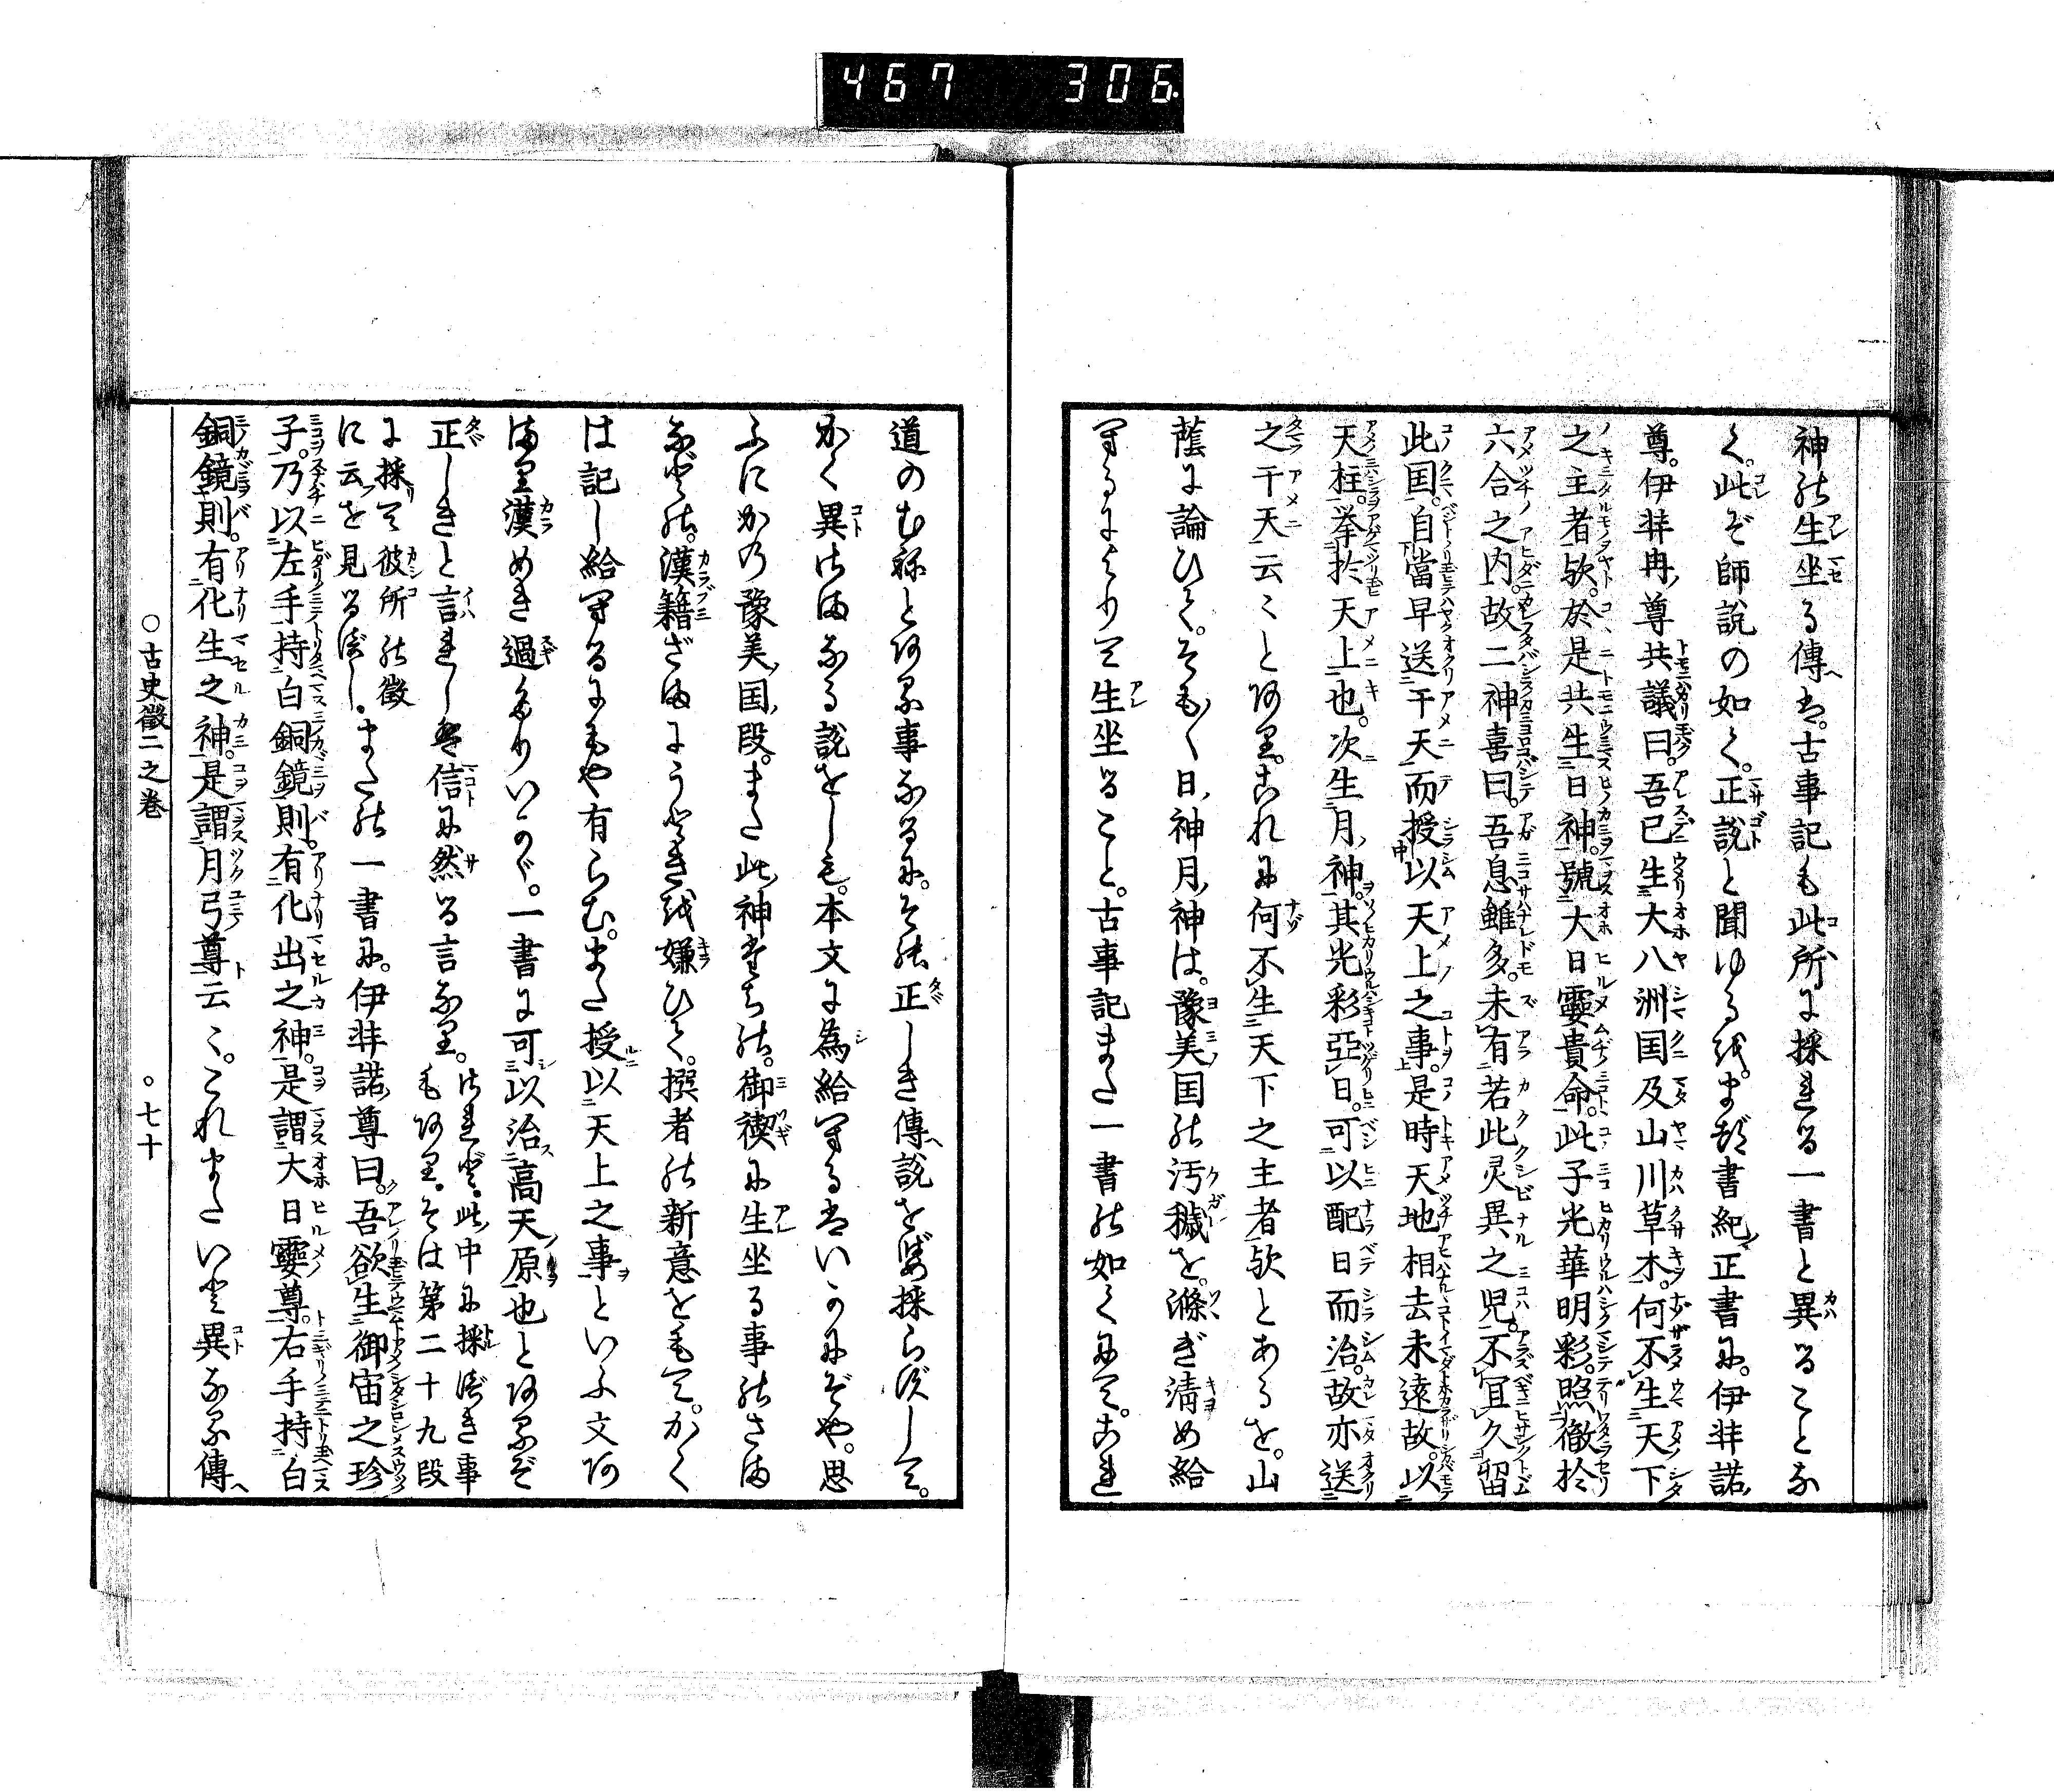 467 306
神の生坐る傳は。古事記も此所に採れる一書と異ることな
く。此ぞ師説の如く。正説と聞ゆるを。まづ書紀正書に。伊弉諾
尊。伊弉冉尊共議曰。吾已生大八洲国及山川草木。何不生天下
之主者歟。於是共生日神。號大日孁貴命。此子光華明彩。照徹於
六合之内。故二神喜曰。吾息雖多。未有若此灵異之児。不宜久留
此国。自當早送于天而授以天上之事。是時天地相去未遠故。以
天柱。挙於天上也。次生月神。其光彩亞日。可以配日而治。故亦送
之于天云々とあり。これに何不生天下之主者歟とあるを。山
蔭に論ひて。そも〳〵日神月神は。豫美国の汚穢を。滌ぎ清め給
へるによりて生坐ること。古事記また一書の如くにて。これ
道のむねとある事なるに。その正しき傳説をば採らずして。
かく異さまなる説をしも。本文に為給へるはいかにぞや。思
ふにかの豫美国段。また此神たちの。御禊に生坐る事のさま
などの。漢籍ざまにうときを嫌ひて。撰者の新意をもて。かく
は記し給へるにもや有らむ。また授以天上之事といふ文あ
まり漢めき過たりいかゞ。一書に可以治高天原也とあるぞ
正しきと言れしは信に然る言なり。されど。此中に採べき事
もあり。そは第二十九段
に採て彼所の徴
に云を見るべし。またの一書に。伊弉諾尊曰。吾欲生御宙之珍
子。乃以左手持白銅鏡則。有化出之神。是謂大日孁尊。右手持白
銅鏡則。有化生之神。是謂月弓尊云々。これまたいと異なる傳
○古史徴二之巻 ○七十